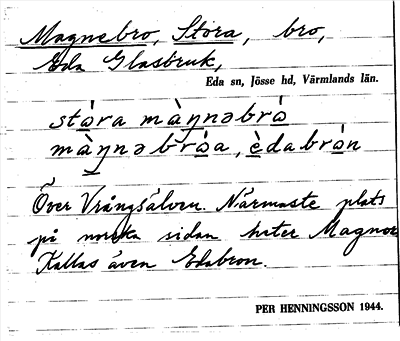 Magnebro, Stora, bro,
Eda Glasbruk,
Eda sn, Jösse hd, Värmlands län.
stȯra màŋnəbrȯ
màŋnəbrȯa, èdabrȯn
Över Vrångsälven. Närmaste plats
på norska sidan heter Magnor
Kallas även Edabron.
PER HENNINGSSON 1944.